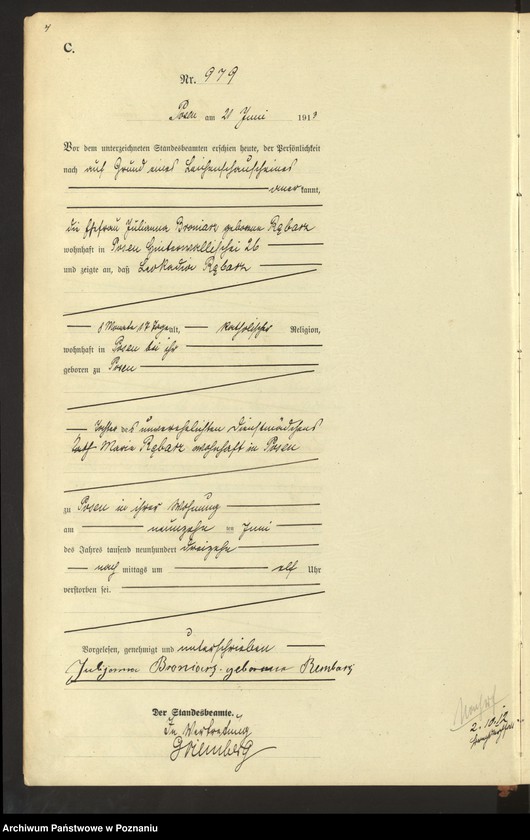 C.
Nr. 979
Posen am 21 Juni 1913
Vor dem unterzeichneten Standesbeamten erschien heute, der Persönlichkeit
nach auf Grund eines Leichenschauscheines
anerkannt,
die Ehefrau Julianna Broniarz geborene Rębarz
wohnhaft in Posen Hinterwallischei 26
und zeigte an, daß Leokadia Rębarz
8 Monate 17 Tage alt, katholischer Religion,
wohnhaft in Posen bei ihr
geboren zu Posen
Tochter des unverehelichten Dienstmädchens
Marie Rębarz wohnhaft in Posen
zu Posen in ihrer Wohnung
am neunzehn ten Juni
des Jahres tausend neunhundert dreizehn
nach mittags um elf Uhr
verstorben sei.
Vorgelesen, genehmigt und unterschrieben
Broniarz geborene Rembarz
Der Standesbeamte.
In Vertretung
Archiwum Państwowe w Poznaniu